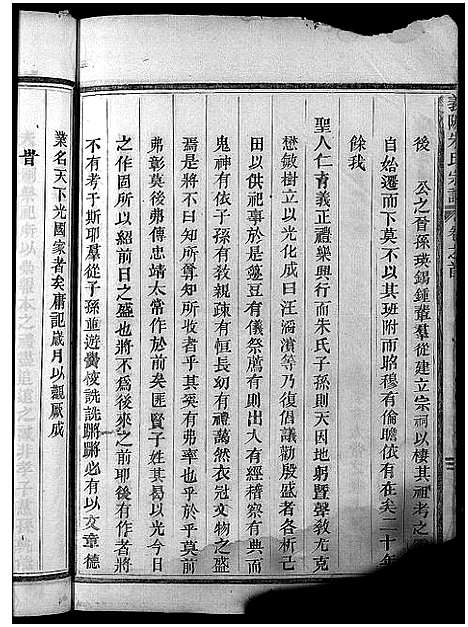 義陽朱氏宗譜 卷之首
後 公之晉孫瑛錫鍾輩羣從建立宗祠以棲其祖考之
自始遷而下莫不以其班附而昭穆有倫瞻依有在矣二十年
餘我
聖人仁育義正禮樂興行而朱氏子孫則天因地躬暨聲教尤克
懋敏樹立以光化成曰汪濤濱等乃復倡議勸殷盛者各析己
田以供祀事於是籩豆有儀祭薦有則出入有經稽察有典而
鬼神有依子孫有殺親疎有恒長幼有禮藹然衣冠文物之盛
焉是將不曰知所尊知所收者乎其矣有弗率也乎於乎莫前
弗彰莫後弗傳忠靖太常作於前矣匪賢子姓其曷以光今日
之作固所以紹前日之盛也將不為後來之之前耶後有作者將
不有考于斯耶羣從子孫並遊黌校詵詵蹡蹡必有以文章德
業名天下光國家者矣庸記歲月以觀厥成
昔